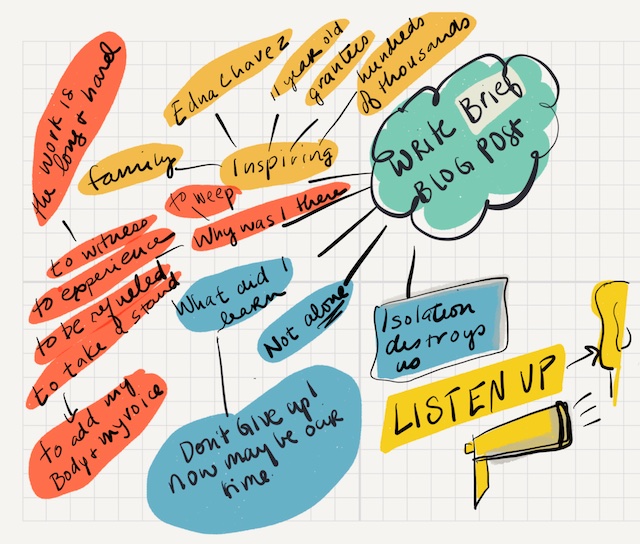 Write Brief
Blog Post
Inspiring
Edna Chavez
11 year old
grantees
hundreds
of thousands
family
Why was I there
to weep
to witness
to experience
to be refueled
to take a stand
the work is
long & hard
to add my
Body & my voice
What did I
learn
Don't Give up!
now may be our
time.
Not alone
Isolation
destroys
us
LISTEN UP